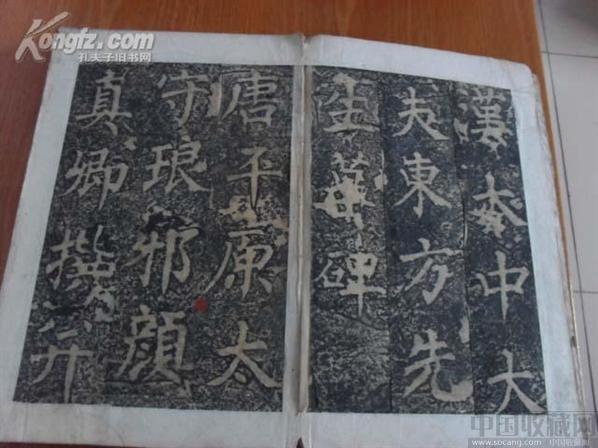 漢太中大
夫東方先
生墓碑
唐平原太
守琅邪顏
真卿撰并
Kongfz.com
孔夫子旧书网
中国收藏网
www.socang.com